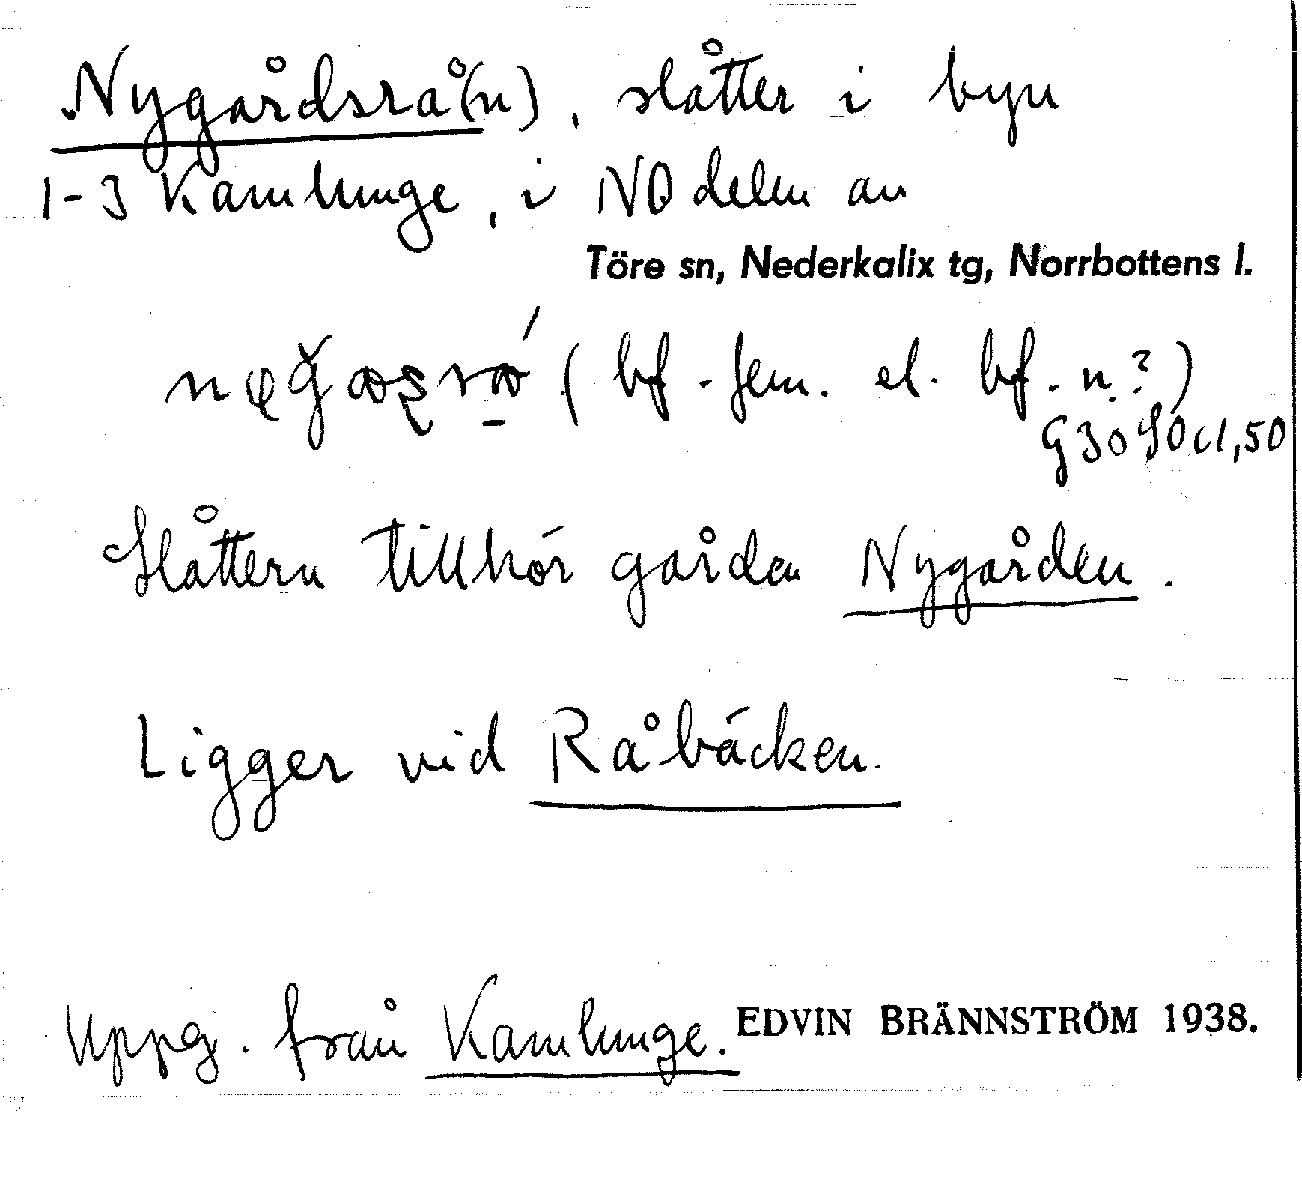 Nygårdsrå(n), slåtter i byn
1-3 Kamlunge, i NO delen av
Töre sn, Nederkalix tg, Norrbottens l.
(bf. fem. el. bf. n.?)
Slåttern tillhör gården Nygården.
Ligger vid Råbäcken.
Uppg. från Kamlunge. EDVIN BRÄNNSTRÖM 1938.